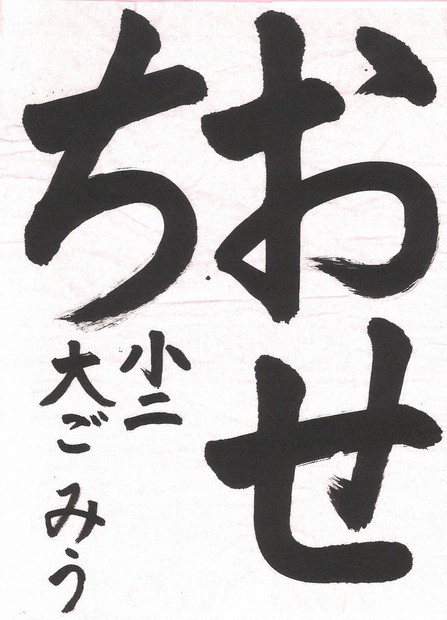 おせ
ち
小二
大ご みう